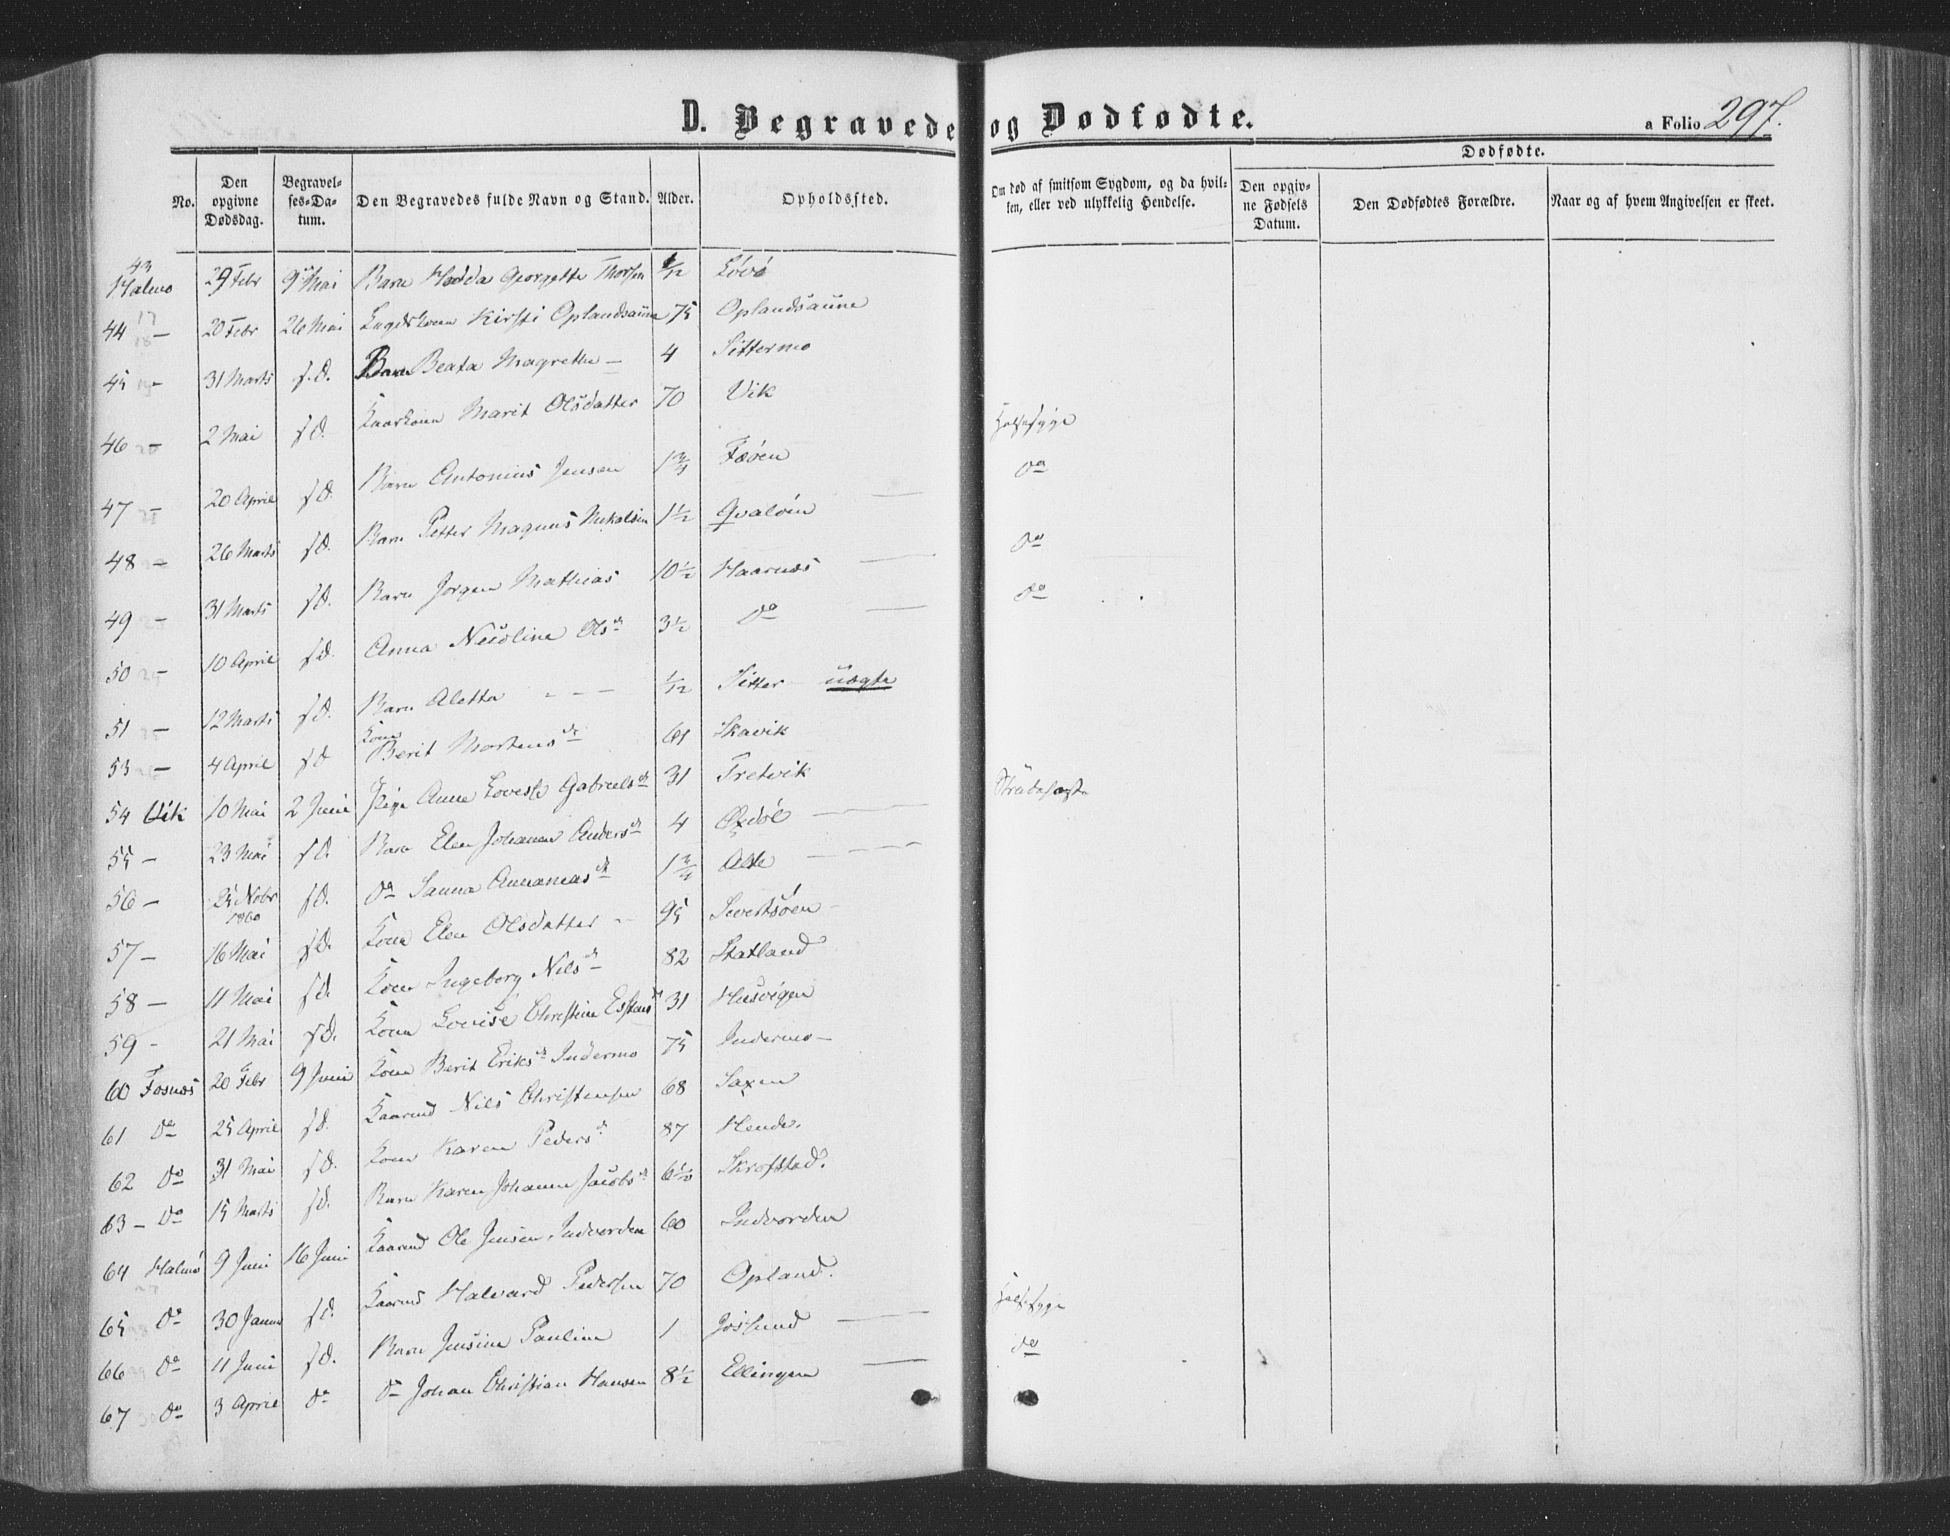 D. Begravede og Dødfødte.
a Folio 297.
Dødfødte.
No. Den opgivne Dødsdag. Begravelses-Datum. Den Begravedes fulde Navn og Stand. Alder. Opholdssted. Om død af smitsom Sygdom, og da hvilken, eller ved ulykkelig Hendelse. Den opgivne Fødsels Datum. Den Dødfødtes Forældre. Naar og af hvem Angivelsen er skeet.
43 29 Febr 9 Mai Barn Georgette Thorsen 1/12 Løvø
44 — 20 Febr 26 Mai Kirsti Oplandsaune 75 Oplandsaune
45 — 31 Marts s.d. Barn Beata Magrethe — 4 Sittermo
46 — 2 Mai s.d. Marit Olsdatter 70 Vik
47 — 20 April s.d. Barn Antonius Jensen 1¾ Fæøen Halssyge
48 — 26 Marts s.d. Barn Petter Magnus Nikolsen 1½ Qvaløen do
49 — 31 Marts s.d. Barn Jørgen Mathias 10½ Haarnæs do
50 — 10 April s.d. Anna Nicoline Olsd 3½ do do
51 — 12 Marts s.d. Barn Aletta 1/12 Sitter uægte
53 — 4 April s.d. Kone Berit Mortensd 61 Skavik
54 Vik 10 Mai 2 Juni Pige Anna Lovise Gabrielsd 31 Tretvik
55 — 23 Mai s.d. Barn Elen Johanna Andersd 4 Oxdøl Strubehoste
56 — 25 Nobr 1860 s.d. do Sanna Annaniasd 1¾ Alte
57 — 16 Mai s.d. Kone Elen Olsdatter 95 Severtsøen
58 — 11 Mai s.d. Kone Ingeborg Nilsd 82 Statland
59 - 21 Mai s.d. Kone Lovise Christine Estensd 31 Husvigen
60 Fosnæs 20 Febr 9 Juni Kone Berit Eriksd Indermo 75 Indermo
61 do 25 April s.d. Kaarmd Nils Christensen 68 Saxen
62 do 31 Mai s.d. Kone Karen Pedersd 87 Hende.
63 — do 15 Marts s.d. Barn Karen Johanna Jacobsd 6½ Skrofstad.
64 Halmø 9 Juni 16 Juni Kaarmd Ole Jensen Indvorden 60 Indvorden
65 do 30 Januar s.d. Kaarmd Halvard Pedersen 70 Opland.
66 do 11 Juni s.d. Barn Jensine Pauline 1 Jøssund Halssyge
67 do 3 April do do Johan Christian Hansen 8½ Ellingen do